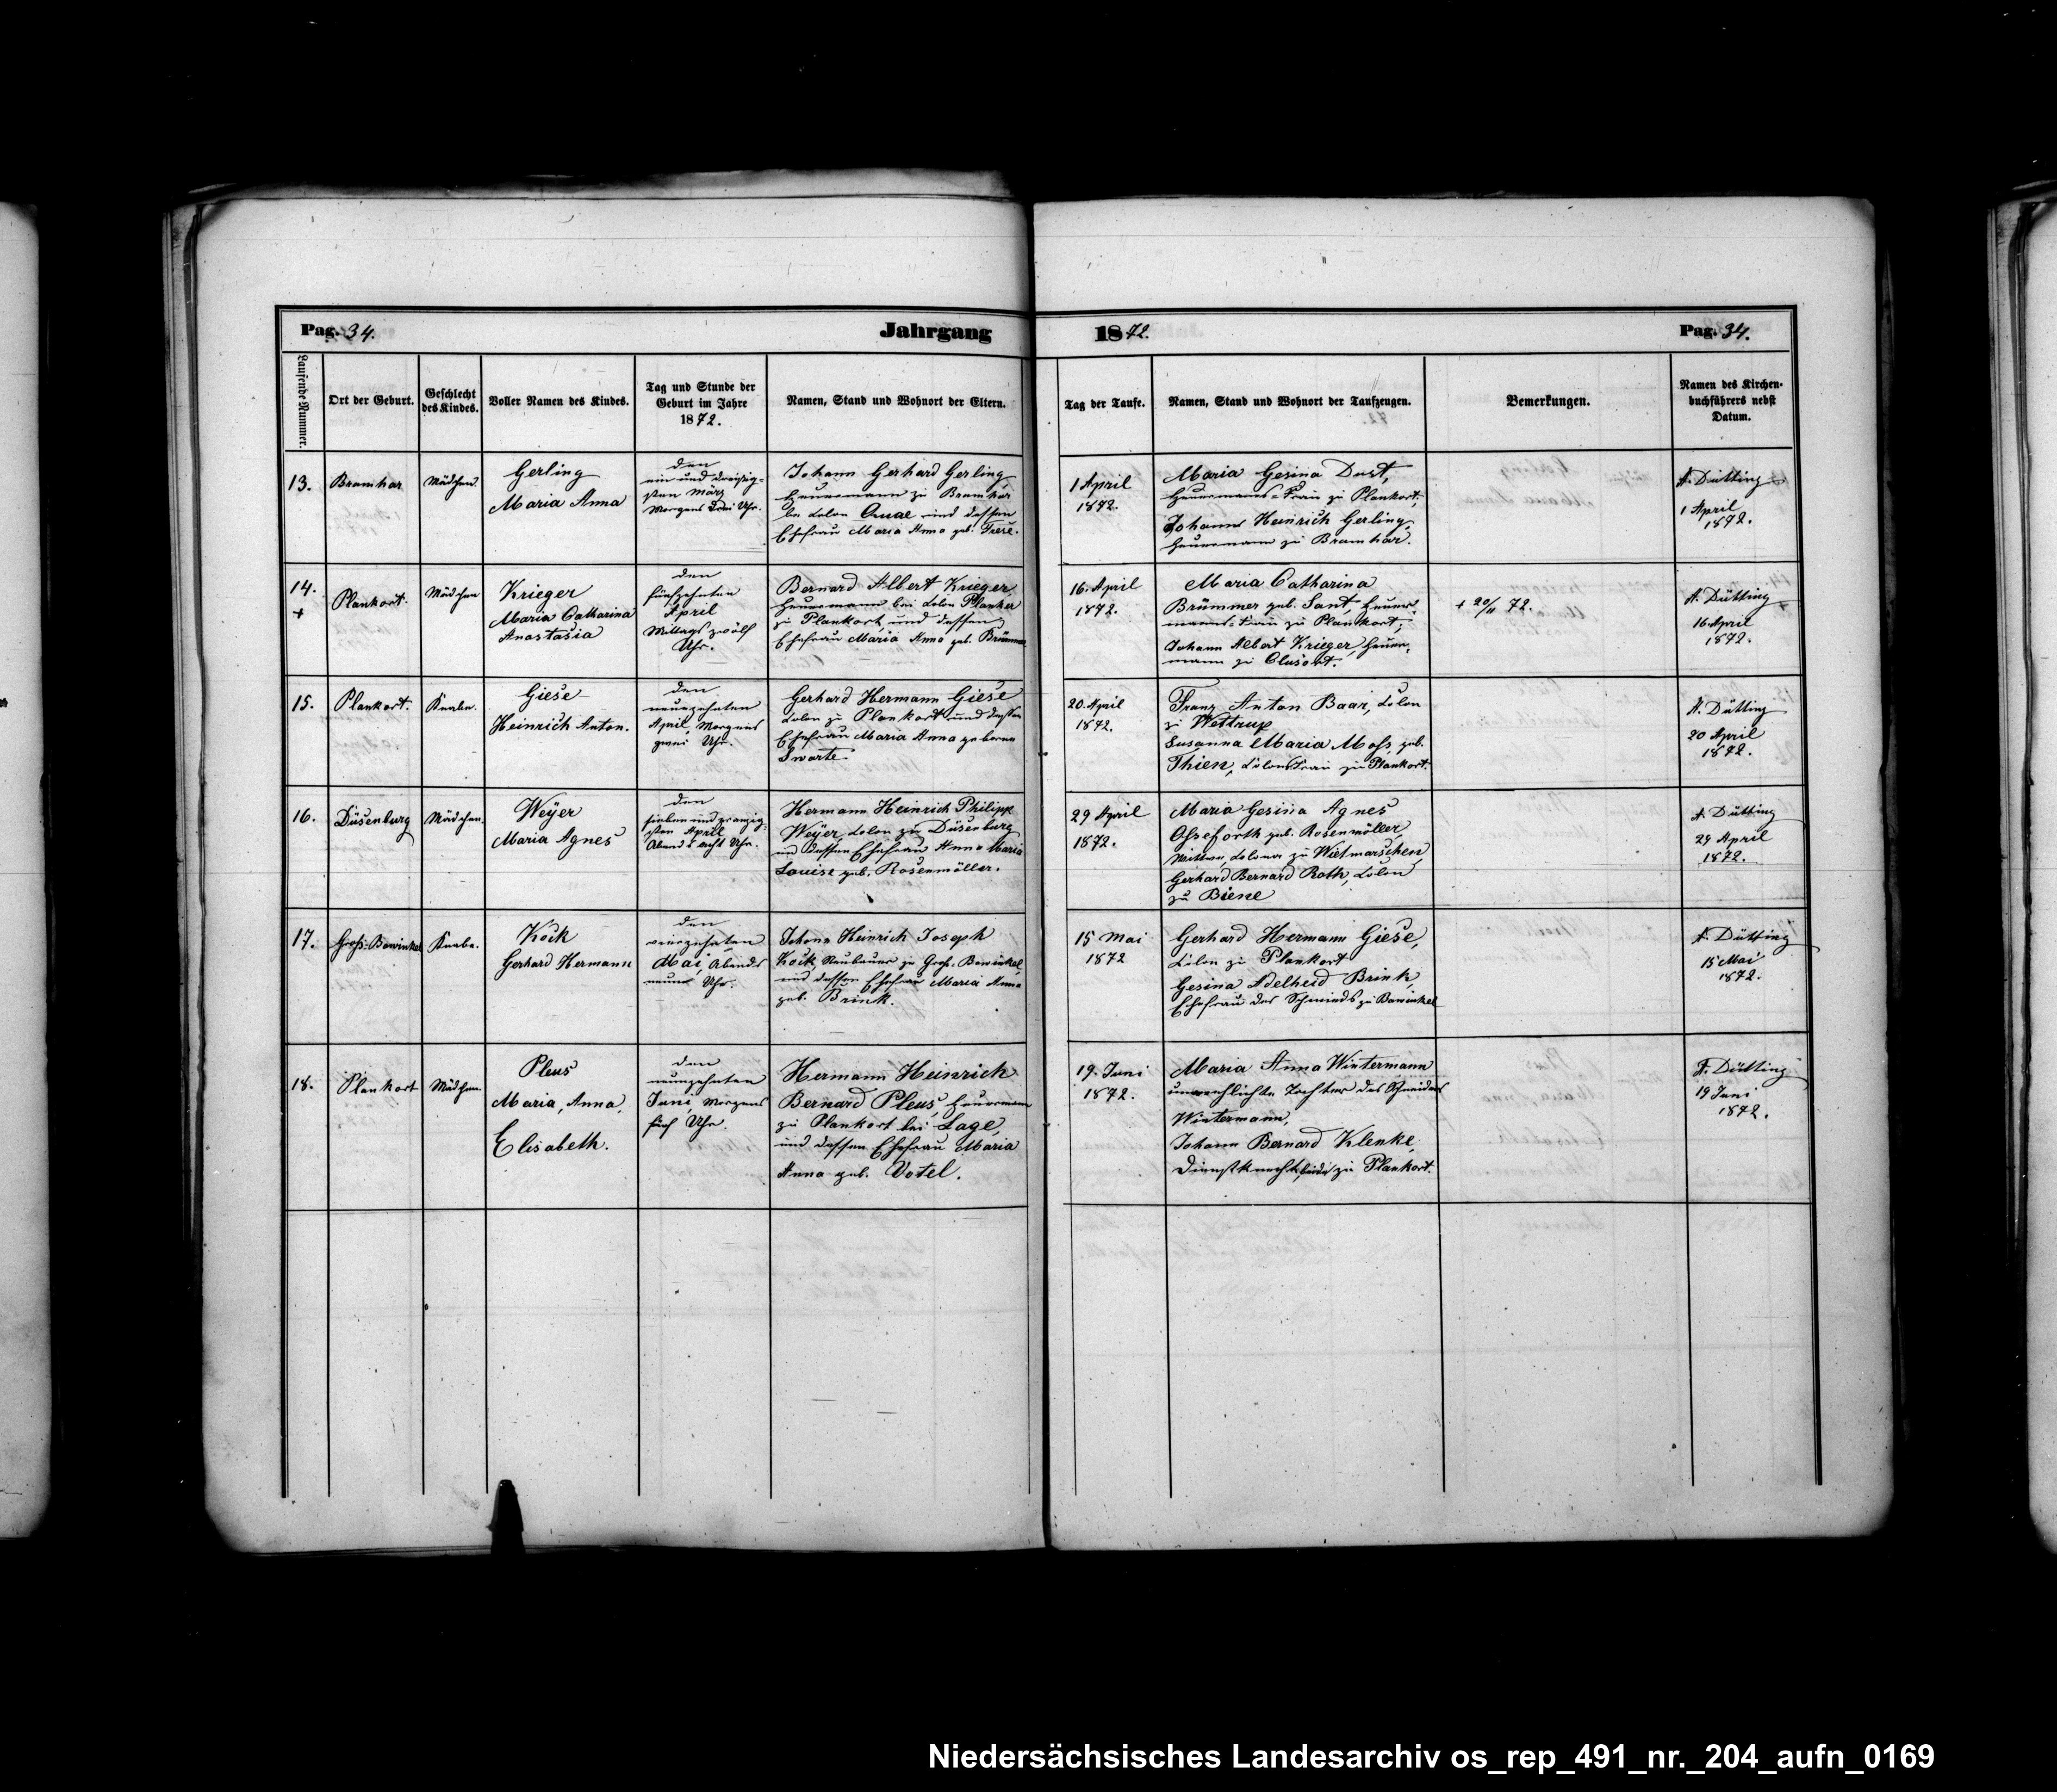 Pag. 34.
Jahrgang
1872.
Pag. 34.
Laufende Nummer.
Ort der Geburt.
Geschlecht
des Kindes.
Voller Namen des Kindes.
Tag und Stunde der
Geburt im Jahre
1872.
Namen, Stand und Wohnort der Eltern.
Tag der Taufe.
Namen, Stand und Wohnort der Taufzeugen.
Bemerkungen.
Namen des Kirchen-
buchführers nebst
Datum.
13.
Bramhar
Mädchen.
Gerling
Maria Anna
den
ein und dreißig-
sten März
Morgens drei Uhr.
Johann Gerhard Gerling
Heuermann zu Bramhar
bei Colon und dessen
Ehefrau Maria Anna geb. Frese.
1 April
1872.
Maria Gesina Dust,
Heuermanns-Frau zu Plankort;
Johann Heinrich Gerling,
Heuermann zu Bramhar.
A. Dütting
1 April
1872.
14.
+
Plankort.
Mädchen
Krieger
Maria Catharina
Anastasia
den
fünfzehnten
April
Mittags zwölf
Uhr.
Bernard Albert Krieger
Heuermann bei Colon Planker
zu Plankort und dessen
Ehefrau Maria Anna geb. Brümmer
16. April
1872.
Maria Catharina
Brümmer geb. Sant, Heuer-
manns-Frau zu Plankort;
Johann Albert Krieger, Heuer-
mann zu Clusort.
+ 20/11 72.
A. Dütting
16 April
1872.
15.
Plankort.
Knabe.
Giese
Heinrich Anton.
den
neunzehnten
April, Morgens
zwei Uhr.
Gerhard Hermann Giese
Colon zu Plankort und dessen
Ehefrau Maria Anna geborne
Swarte.
20. April
1872.
Franz Anton Baar, Colon
zu Wettrup
Susanna Maria Moß, geb.
Thien, Colons Frau zu Plankort.
A. Dütting
20 April
1872.
16.
Düsenburg
Mädchen.
Weÿer
Maria Agnes
den
sieben und zwanzig-
sten April
Abends acht Uhr.
Hermann Heinrich Philipp
Weÿer, Colon zu Düsenburg
und dessen Ehefrau Anna Maria
Louise geb. Rosenmöller.
29 April
1872.
Maria Gesina Agnes
geb. Rosenmöller,
Wittwe, Colona zu Wietmarschen
Gerhard Bernard Roth, Colon
zu Biene
A. Dütting
29 April
1872.
17.
Groß-Bawinkel
Knabe.
Köck
Gerhard Hermann
den
vierzehnten
Mai, Abends
neun Uhr.
Johann Heinrich Joseph
Köck, Neubauer zu Groß-Bawinkel,
und dessen Ehefrau Maria Anna
geb. Brink.
15 Mai
1872
Gerhard Hermann Giese,
Colon zu Plankort
Gesina Adelheid Brink,
Ehefrau des Schmieds zu Bawinkel
A. Dütting
15 Mai
1872.
18.
Plankort
Mädchen.
Pleus
Maria, Anna,
Elisabeth.
den
neunzehnten
Juni, Morgens
fünf Uhr.
Hermann Heinrich
Bernard Pleus, Heuermann
zu Plankort bei Lage,
und dessen Ehefrau Maria
Anna geb. Votel.
19. Juni
1872.
Maria Anna Wintermann
unverehlichte Tochter des Schneiders
Wintermann,
Johann Bernard Klenke,
Dienstknecht, beide zu Plankort.
A. Dütting
19 Juni
1872.
Niedersächsisches Landesarchiv os_rep_491_nr._204_aufn_0169